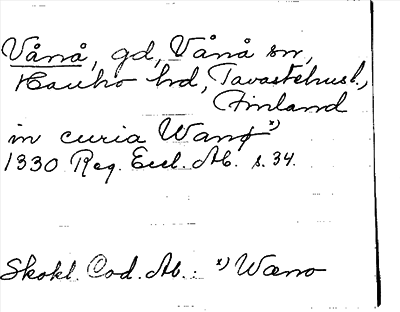 Vånå, gd, Vånå sn,
Hauho hd, Tavastehusl.,
Finland
in curia Wanø x)
1330 Reg. Eccl. Ab. s. 34.
Skokl. Cod. Ab.: x) Wæno